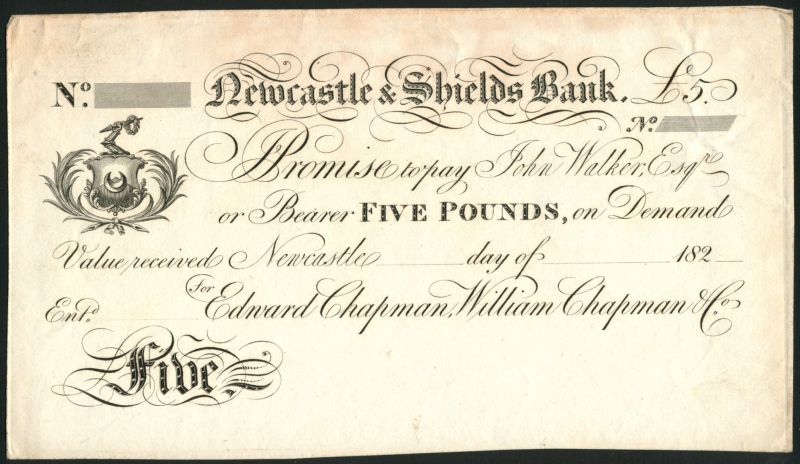 Nº. Newcastle & Shields Bank. £5.
Nº.
I Promise to pay John Walker, Esqʳᵉ
or Bearer FIVE POUNDS, on Demand
Value received Newcastle day of 182
for Edward Chapman, William Chapman & Cº.
Entᵈ.
Five